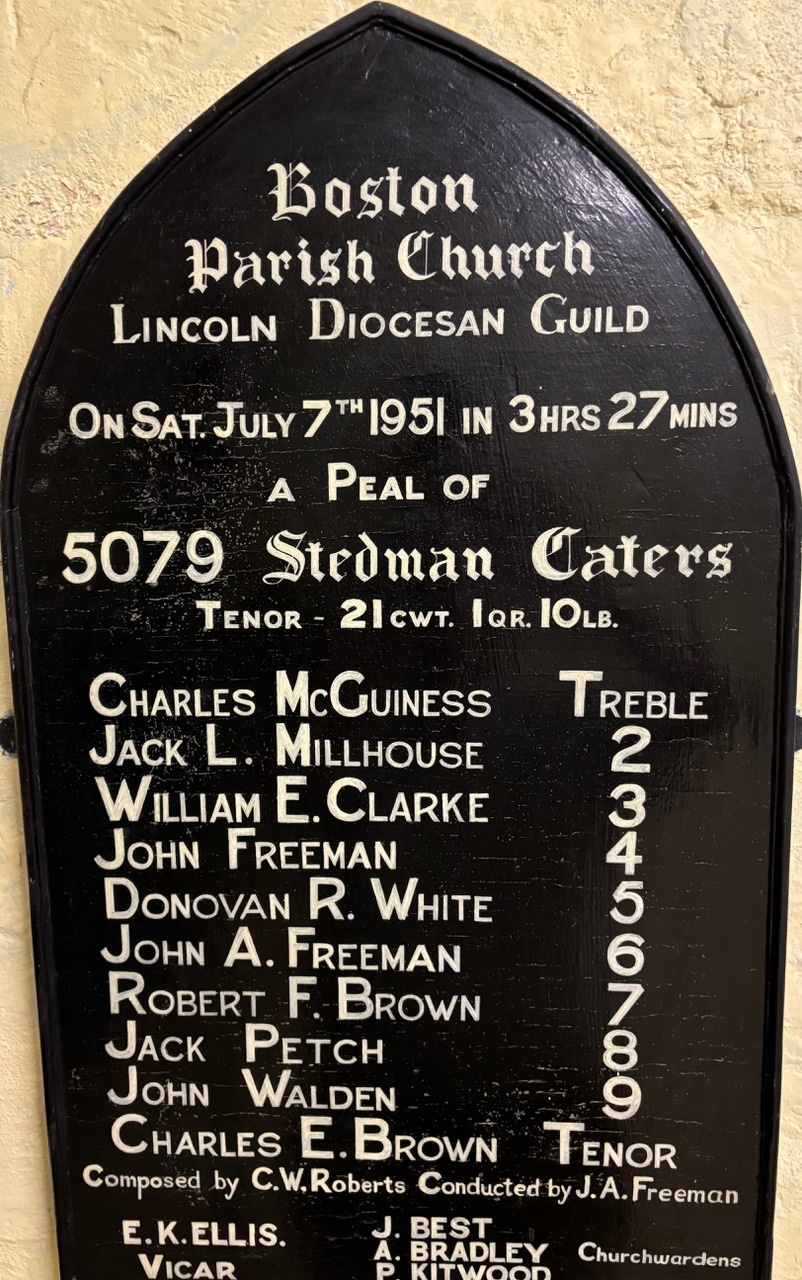 Boston
Parish Church
LINCOLN DIOCESAN GUILD
ON SAT. JULY 7TH 1951 IN 3HRS 27MINS
A PEAL OF
5079 Stedman Caters
TENOR - 21CWT. 1QR. 10LB.
CHARLES MCGUINESS TREBLE
JACK L. MILLHOUSE 2
WILLIAM E. CLARKE 3
JOHN FREEMAN 4
DONOVAN R. WHITE 5
JOHN A. FREEMAN 6
ROBERT F. BROWN 7
JACK PETCH 8
JOHN WALDEN 9
CHARLES E. BROWN TENOR
Composed by C.W. Roberts Conducted by J.A. Freeman
E.K. ELLIS. J. BEST
A. BRADLEY Churchwardens
VICAR P. KITWOOD